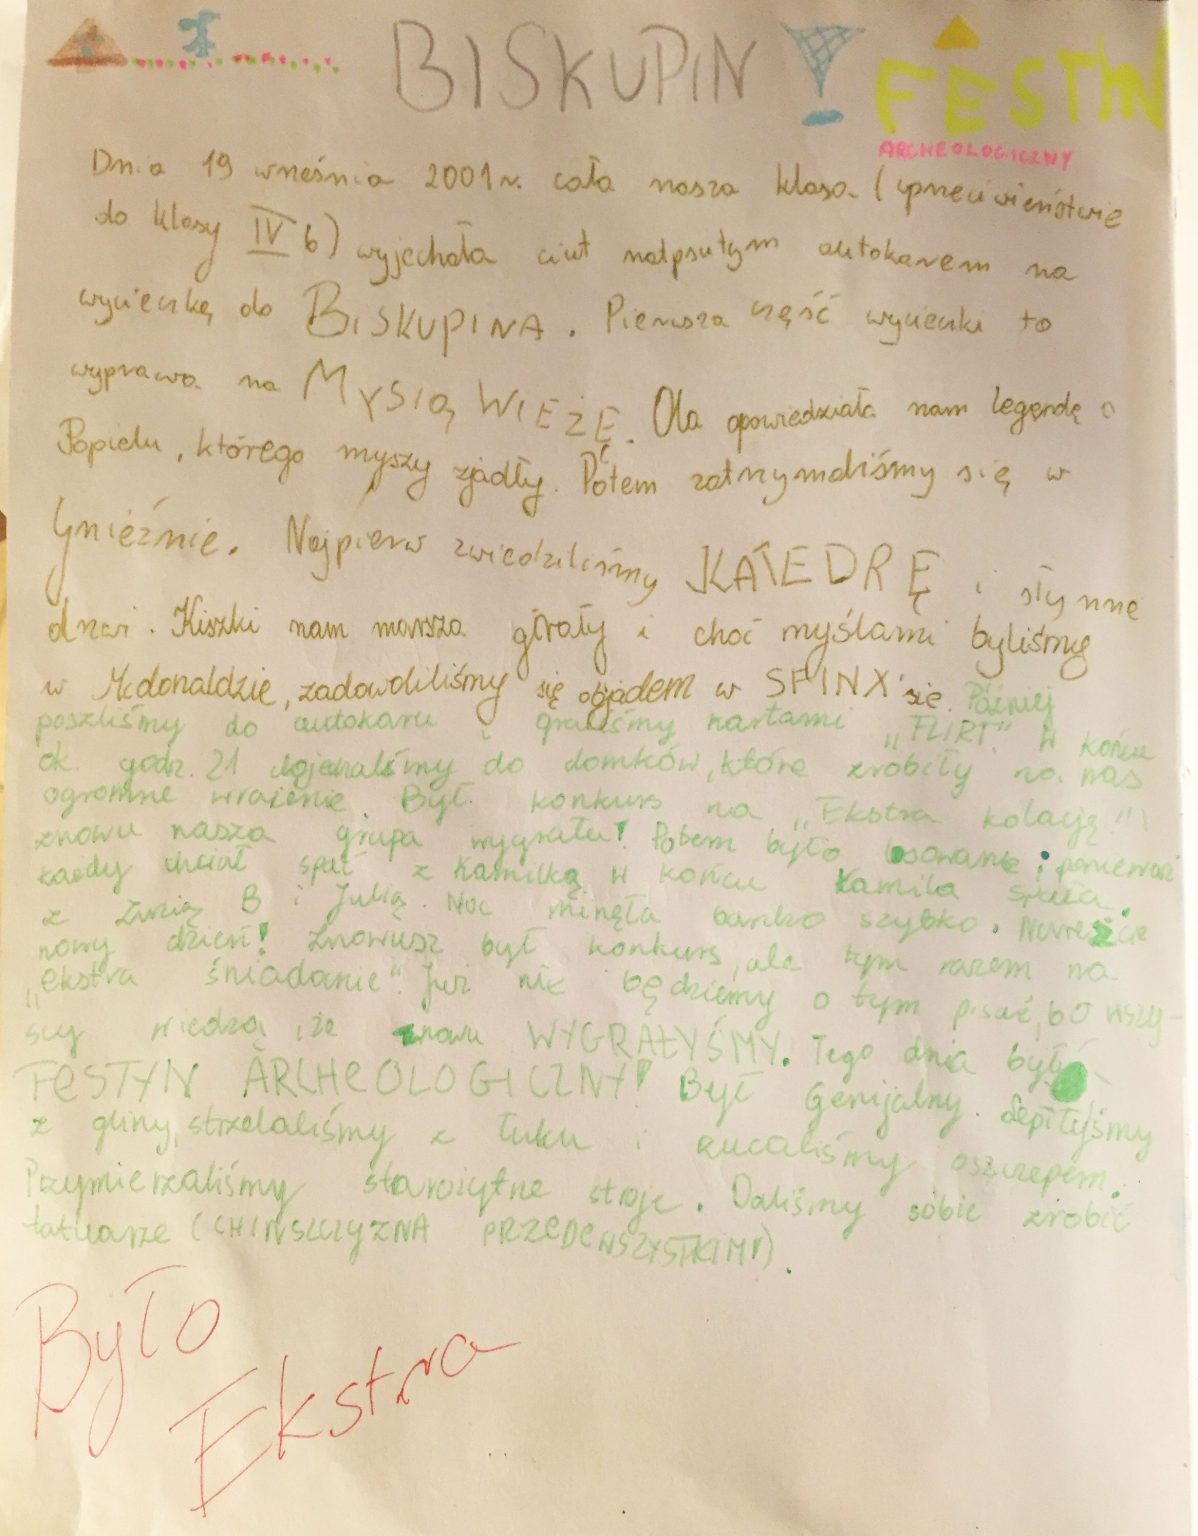 BISKUPIN FESTYN
ARCHEOLOGICZNY
Dnia 19 września 2001r. cała nasza klasa (wprzeciwieństwie
do klasy IV b) wyjechała ciut nadpsutym autokarem na
wycieczkę do BISKUPINA. Pierwsza część wycieczki to
wyprawa na MYSIĄ WIEŻĘ. Ola opowiedziała nam legendę o
Popielu, którego myszy zjadły. Potem zatrzymaliśmy się w
Gnieźnie. Najpierw zwiedziliśmy KATEDRĘ i słynne
drzwi. Kiszki nam marsza grały i choć myślami byliśmy
w Mcdonaldzie, zadowoliliśmy się objadem w SFINX'sie. Później
poszliśmy do autokaru i graliśmy kartami „FLIRT". W końcu
ok. godz. 21 dojechaliśmy do domków, które zrobiły na nas
ogromne wrażenie. Był konkurs na „Ekstra kolację"!
znowu nasza grupa wygrała! Potem było losowanie; ponieważ
każdy chciał spać z Kamilką. W końcu Kamila spała
z Zuzią B i Julią. Noc minęła bardzo szybko. Nareszcie
nowy dzień! Znowusz był konkurs, ale tym razem na
„ekstra śniadanie". Już nie będziemy o tym pisać, bo wszy-
scy wiedzą, że znowu WYGRAŁYŚMY. Tego dnia był
FESTYN ARCHEOLOGICZNY! Był Genijalny. Lepiłyśmy
z gliny, strzelaliśmy z łuku i rzucaliśmy oszczepem.
Przymierzaliśmy starożytne stroje. Daliśmy sobie zrobić
tatuarze (CHIŃSZCZYZNA PRZEDEWSZYSTKIM!).
Było
Ekstra